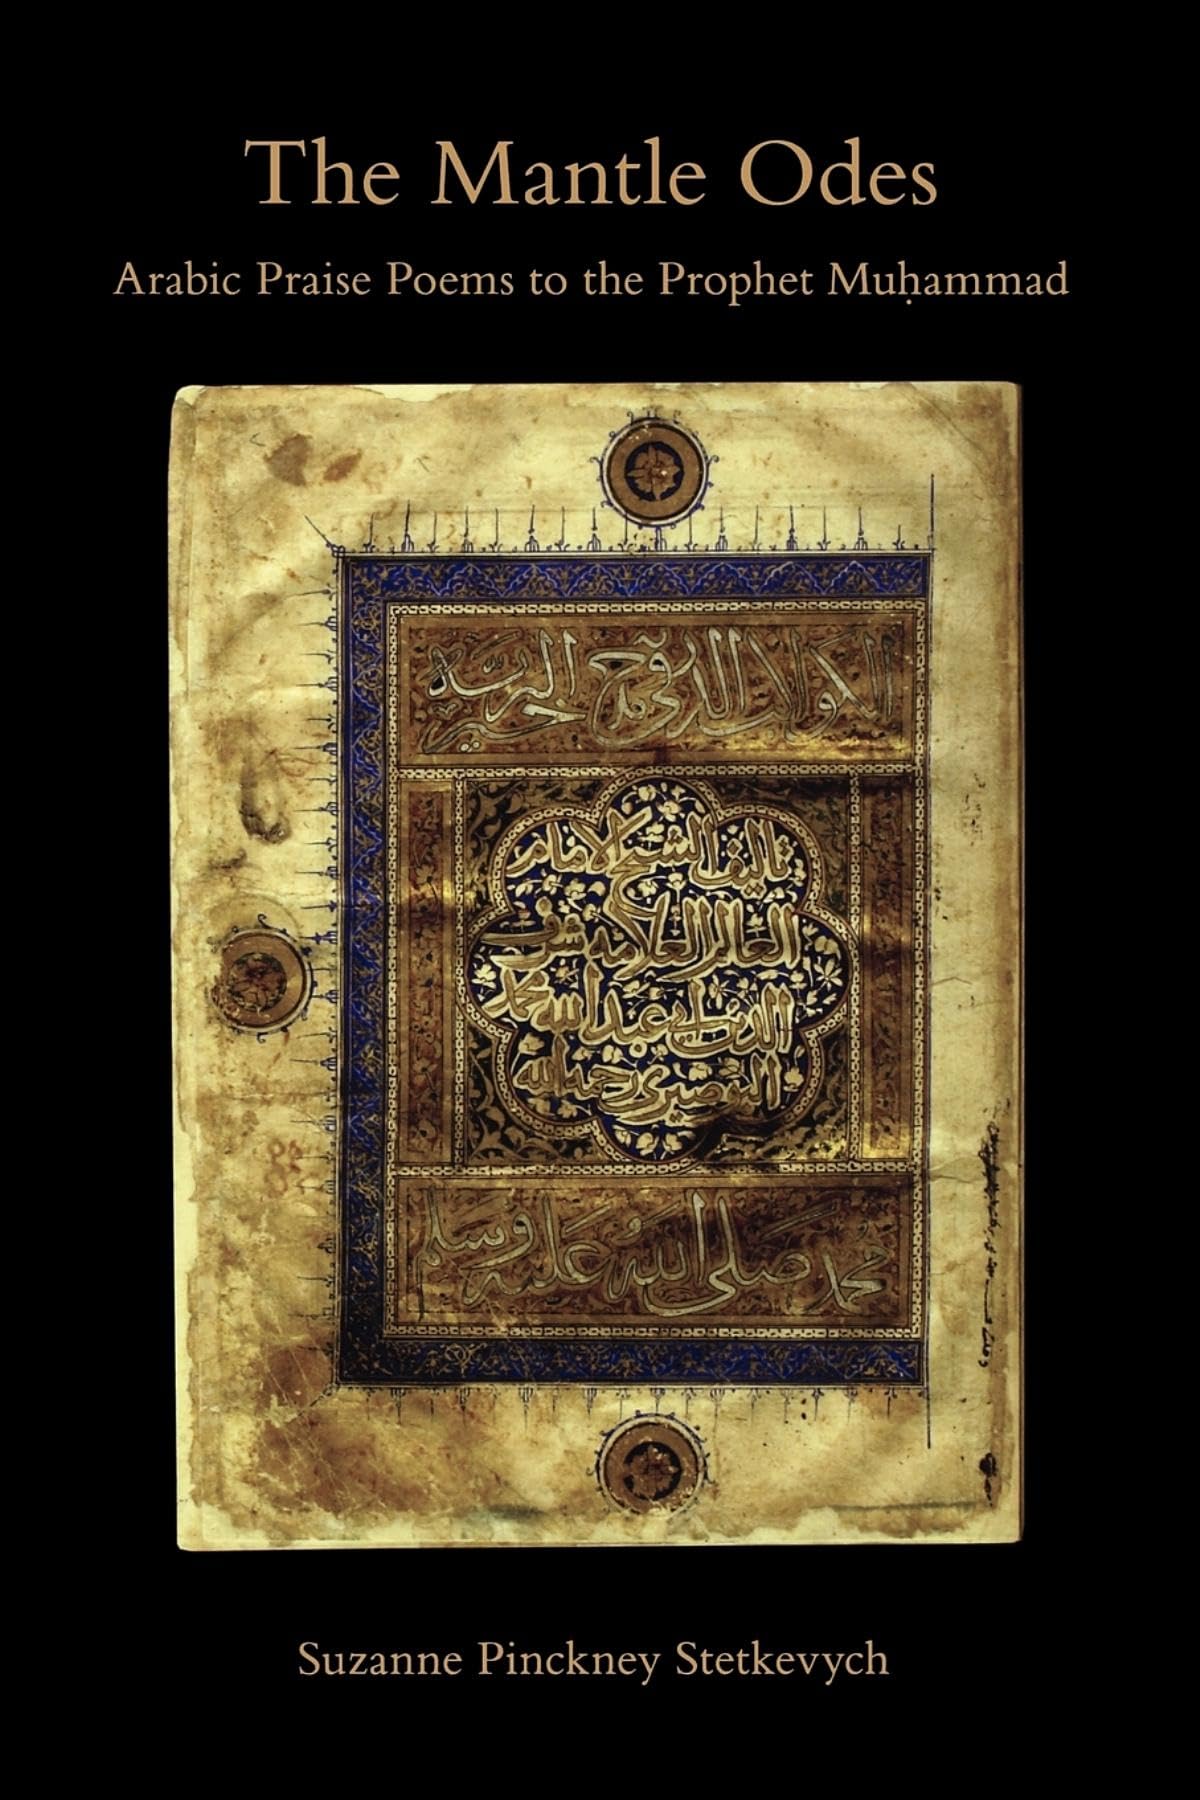 The Mantle Odes
Arabic Praise Poems to the Prophet Muḥammad
الكواكب الدرية في مدح خير البرية
تاليف الشيخ الامام
العالم العلامه شرف
الدين ابي عبد الله محمد
البوصيري رحمه الله
محمد صلى الله عليه وسلم
Suzanne Pinckney Stetkevych